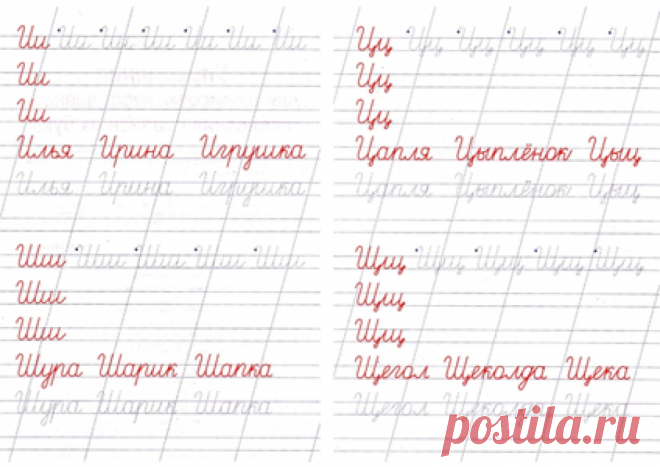 Ии Ии Ии Ии Ии Ии Ии
Ии
Ии
Илья Ирина Игрушка
Илья Ирина Игрушка
Шш Шш Шш Шш Шш
Шш
Шш
Шура Шарик Шапка
Шура Шарик Шапка
Цц Цц Цц Цц Цц Цц
Цц
Цц
Цапля Цыплёнок Цыц
Цапля Цыплёнок Цыц
Щщ Щщ Щщ Щщ Щщ
Щщ
Щщ
Щегол Щеколда Щека
Щегол Щеколда Щека
postila.ru